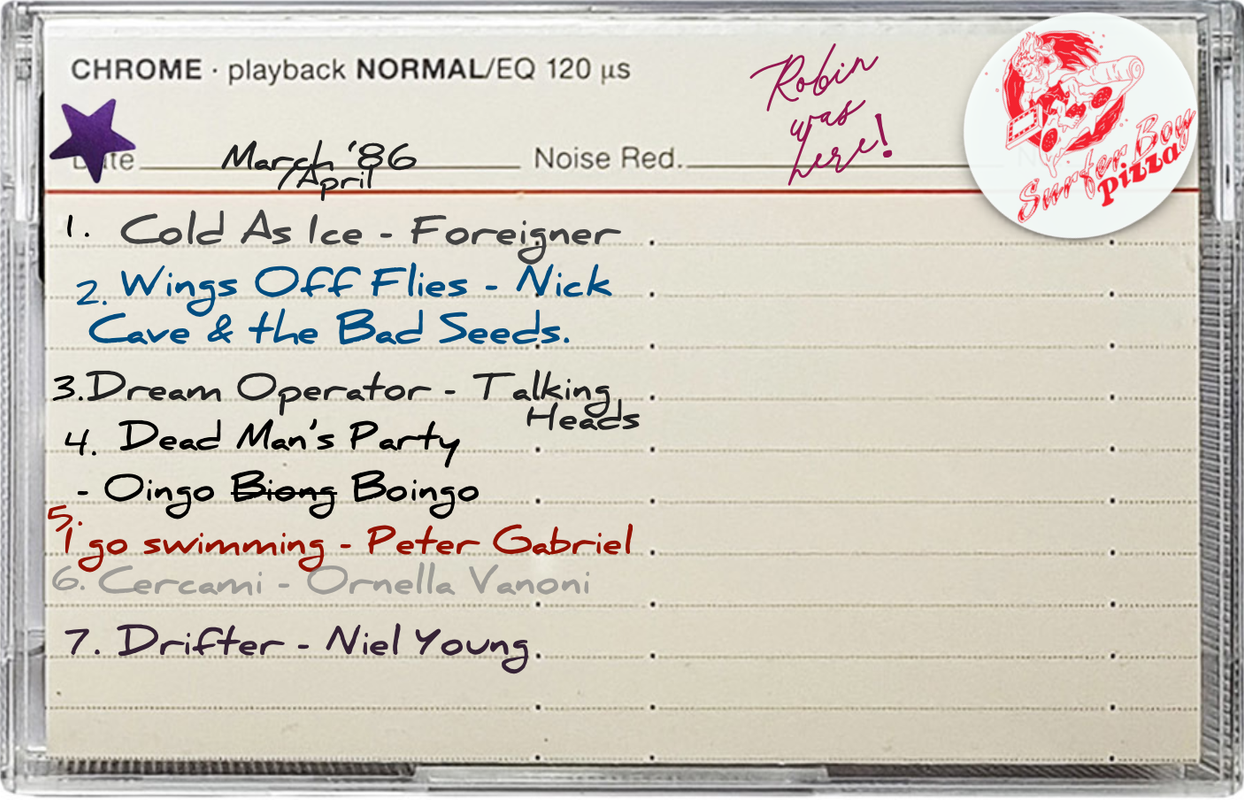 CHROME · playback NORMAL/EQ 120 µs
Robin
was
here!
Surfer Boy
Pizza
Date March '86
/April
Noise Red.
1. Cold As Ice - Foreigner
2. Wings Off Flies - Nick
Cave & the Bad Seeds.
3. Dream Operator - Talking
Heads
4. Dead Man's Party
- Oingo Biong Boingo
5.
I go swimming - Peter Gabriel
6. Cercami - Ornella Vanoni
7. Drifter - Niel Young